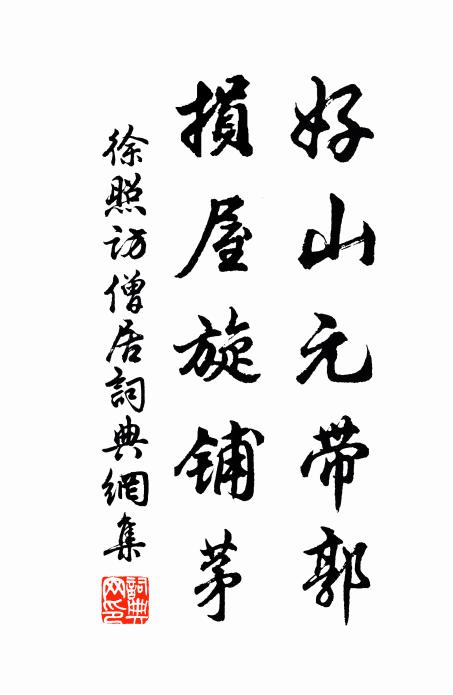 好山元带郭
損屋旋铺茅
徐照访僧居詞典網集
詞典网印